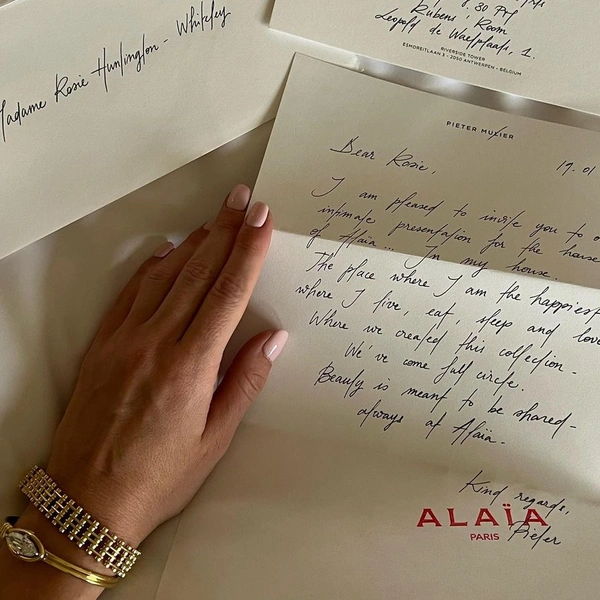 Madame Rosie Huntington - Whitley
, 30 Pm
Rubens' Room
Leopold de Waelplaats, 1.
RIVERSIDE TOWER
ESMOREITLAAN 3 - 2050 ANTWERPEN - BELGIUM
PIETER MULIER
19. 01
Dear Rosie,
I am pleased to invite you to
intimate presentation for the house
of Alaïa... In my house.
The place where I am the happiest
where I live, eat, sleep and love
Where we created this collection -
We've come full circle.
Beauty is meant to be shared -
always at Alaïa -
Kind regards,
Pieter
ALAÏA
PARIS